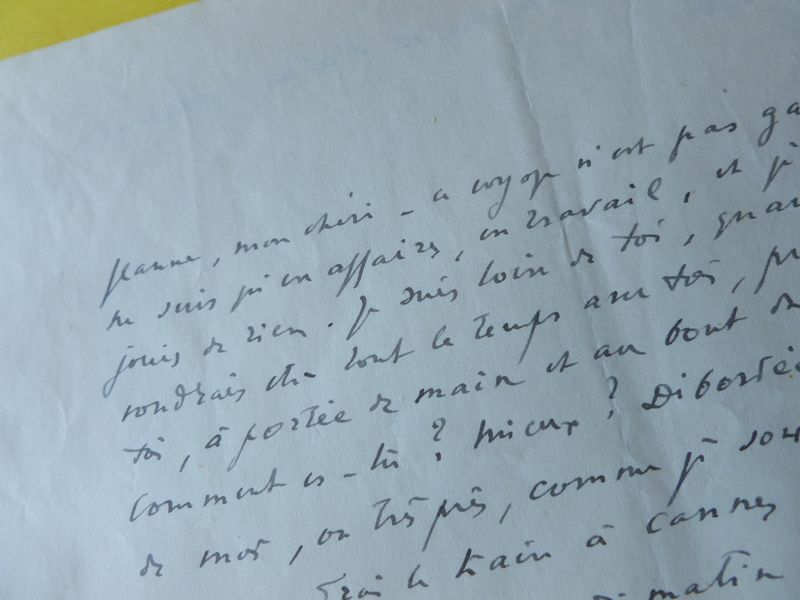 Jeanne, mon chéri – ce voyage n'est pas ga
ne suis qu'en affaires, en travail, et je
jouis de rien. Je suis loin de toi, quan
voudrais être tout le temps avec toi, pr
toi, à portée de main et au bout de
Comment es-tu ? Mieux ? Débordée
de moi, ou très près, comme je sou
le train à Cannes
matin